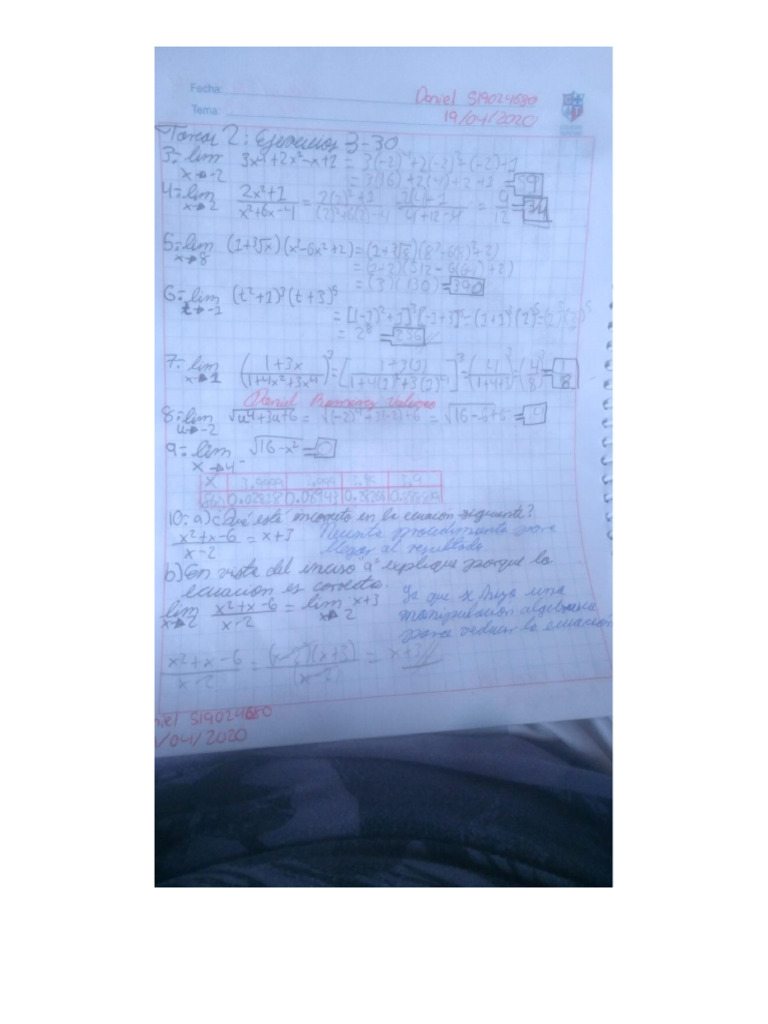 Fecha:
Daniel S19024680
Tema:
19/04/2020
Tarea 2: Ejercicios 3-30
3= lim x→-2 3x4+2x²-x+1 = 3(-2)4+2(-2)²-(-2)+1
= 3(16)+2(4)+2+1 = 59
4= lim x→2 2x²+1 / x²+6x-4 = 2(2)²+1 / (2)²+6(2)-4 2(4)+1 / 4+12-4 = 9/12 = 3/4
5= lim x→8 (1+³√x)(x³-6x²+2) = (1+³√8)(8³-6(8)²+2)
= (1+2)(512-6(64)+2)
= (3)(130) = 390
6= lim t→-1 (t²+1)³(t+3)⁵
= [(-1)²+1]³[-1+3]⁵ = (1+1)³(2)⁵ = (2)³(2)⁵
= 2⁸ = 256
7= lim x→1 (1+3x / 1+4x²+3x⁴)³ = [1+3(1) / 1+4(1)²+3(1)⁴]³ = (4 / 1+4+3)³ = (4/8)³ = 1/8
Daniel
8= lim u→-2 √u⁴+3u+6 = √(-2)⁴+3(-2)+6 = √16-6+6 = 4
9= lim x→4⁻ √16-x² = 0
X 3.9999 3.999 3.9
0.02828 0.08943
10= a) ¿Qué está incorrecto en la ecuación siguiente?
x²+x-6 / x-2 = x+3 Necesita procedimiento para
llegar al resultado.
b) En vista del inciso a explique porque la
ecuación es correcta.
lim x→2 x²+x-6 / x-2 = lim x→2 x+3 Ya que se hizo una
manipulación algebraica
para reducir la ecuación
x²+x-6 / x-2 = (x-2)(x+3) / (x-2) = x+3//
niel S19024680
/04/2020